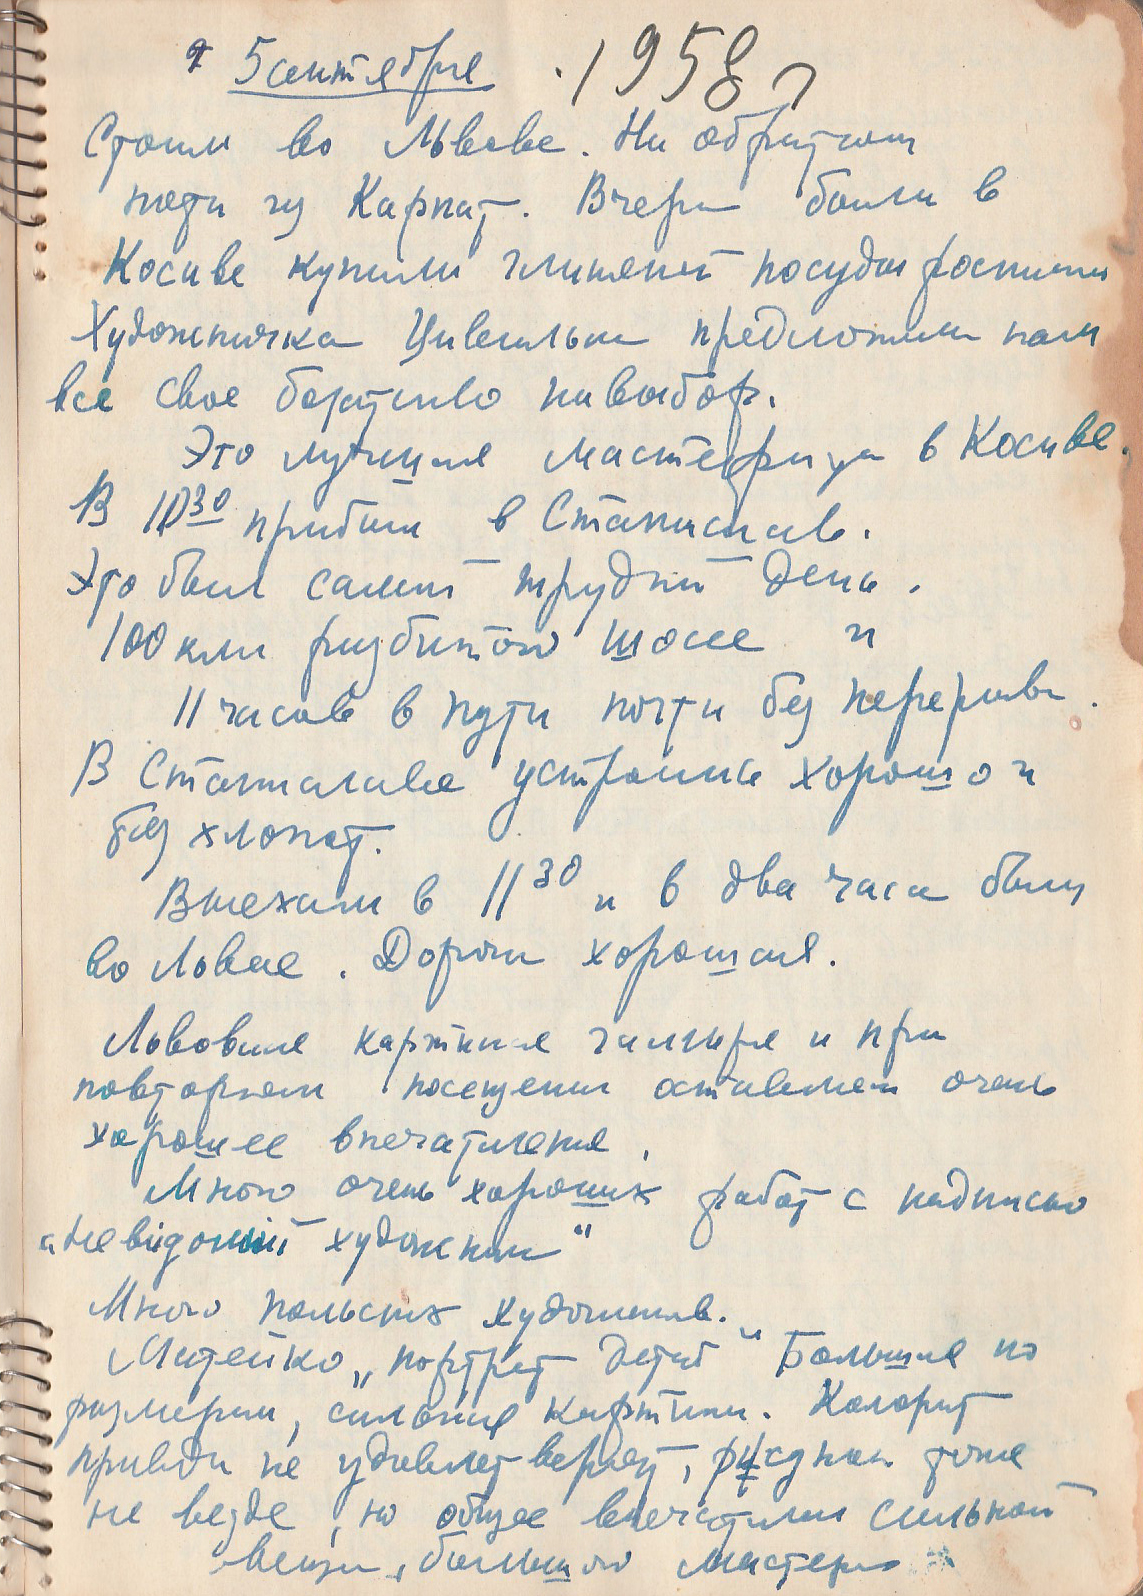 5 сентября 1958 г
Стоим во Львове. На обратном
пути из Карпат. Вчера были в
Косиве купили глиняной посуды роспись
Художничка Цвилык предложила нам
все свое богатство на выбор.
Это лучшая мастерица в Косиве.
В 10 30 прибыли в Станислав.
Это был самый трудный день.
100 клм разбитого шоссе и
11 часов в пути почти без перерыва.
В Станиславе устроились хорошо и
без хлопот.
Выехали в 11 30 и в два часа были
во Львове. Дорога хорошая.
Львовская картинная галлерея и при
повторном посещении оставляет очень
хорошее впечатление.
Много очень хороших работ с надписью
„Невідомий художник“
Много польских художников.
Матейко „портрет детей“ Большие по
размерам, сильные картины. Колорит
правда не удовлетворяет, рисунок тоже
не везде, но общее впечатление сильной
вещи, большого мастера